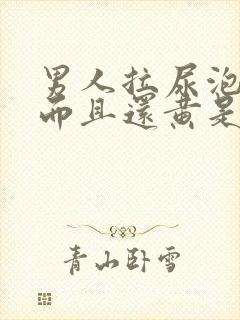 男人拉尿泡
而且还黄是
青山卧雪